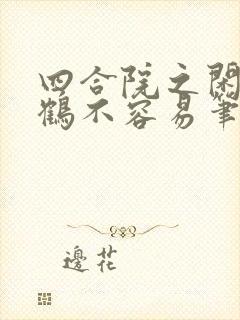 四合院之閑
鶴不容易筆
邊花